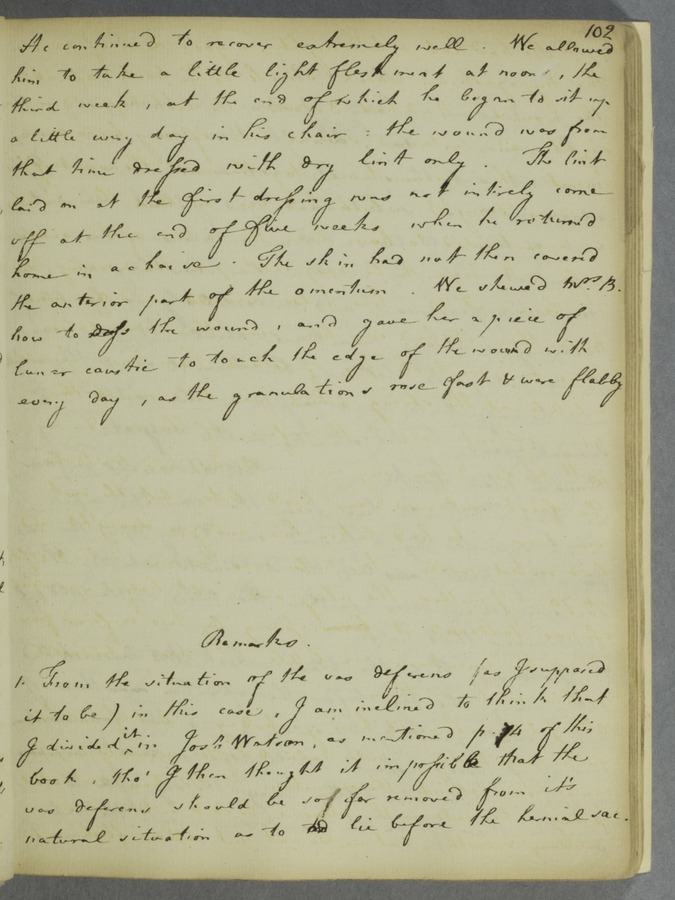 102
He continued to recover extremely well. We allowed
him to take a little light flesh meat at noon, the
third week, at the end of which he began to sit up
a little every day in his chair: the wound was from
that time dressed with dry lint only. The lint
laid on at the first dressing was not intirely come
off at the end of five weeks when he returned
home in a chaise. The skin had not then covered
the anterior part of the omentum. We shewed Mrs. B.
how to dress the wound, and gave her a piece of
lunar caustic to touch the edge of the wound with
every day, as the granulations rose fast & were flabby
Remarks.
1. From the situation of the vas deferens (as I supposed
it to be) in this case, I am inclined to think that
I divided it in Josh. Watson, as mentioned p. 74 of this
book, tho' I then thought it impossible that the
vas deferens should be so far removed from it's
natural situation as to lie before the hernial sac.